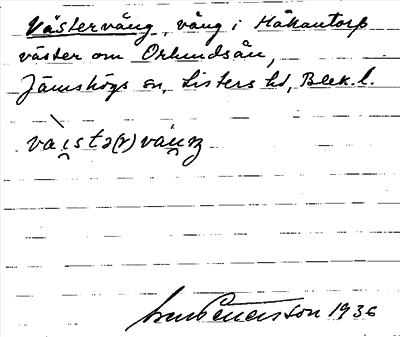 Västervång, vång i Håkantorp
väster om Orlundsån,
Jämshögs sn, Listers hd, Blek. l.
vàistə(r)váuŋ
1936